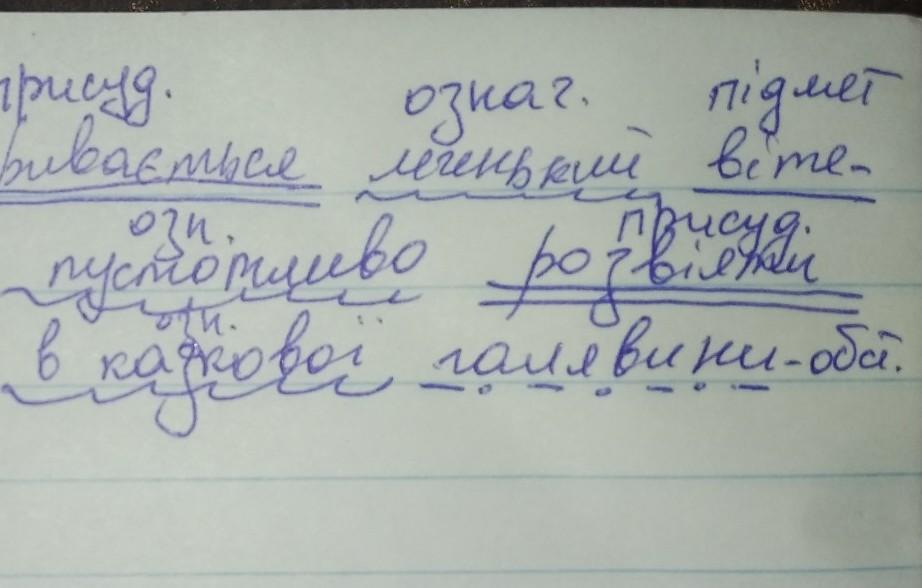 присуд. означ. підмет
ривається легенький віте-
озн. присуд.
пустотливо розвіяти
озн.
в казкової галявини-обст.